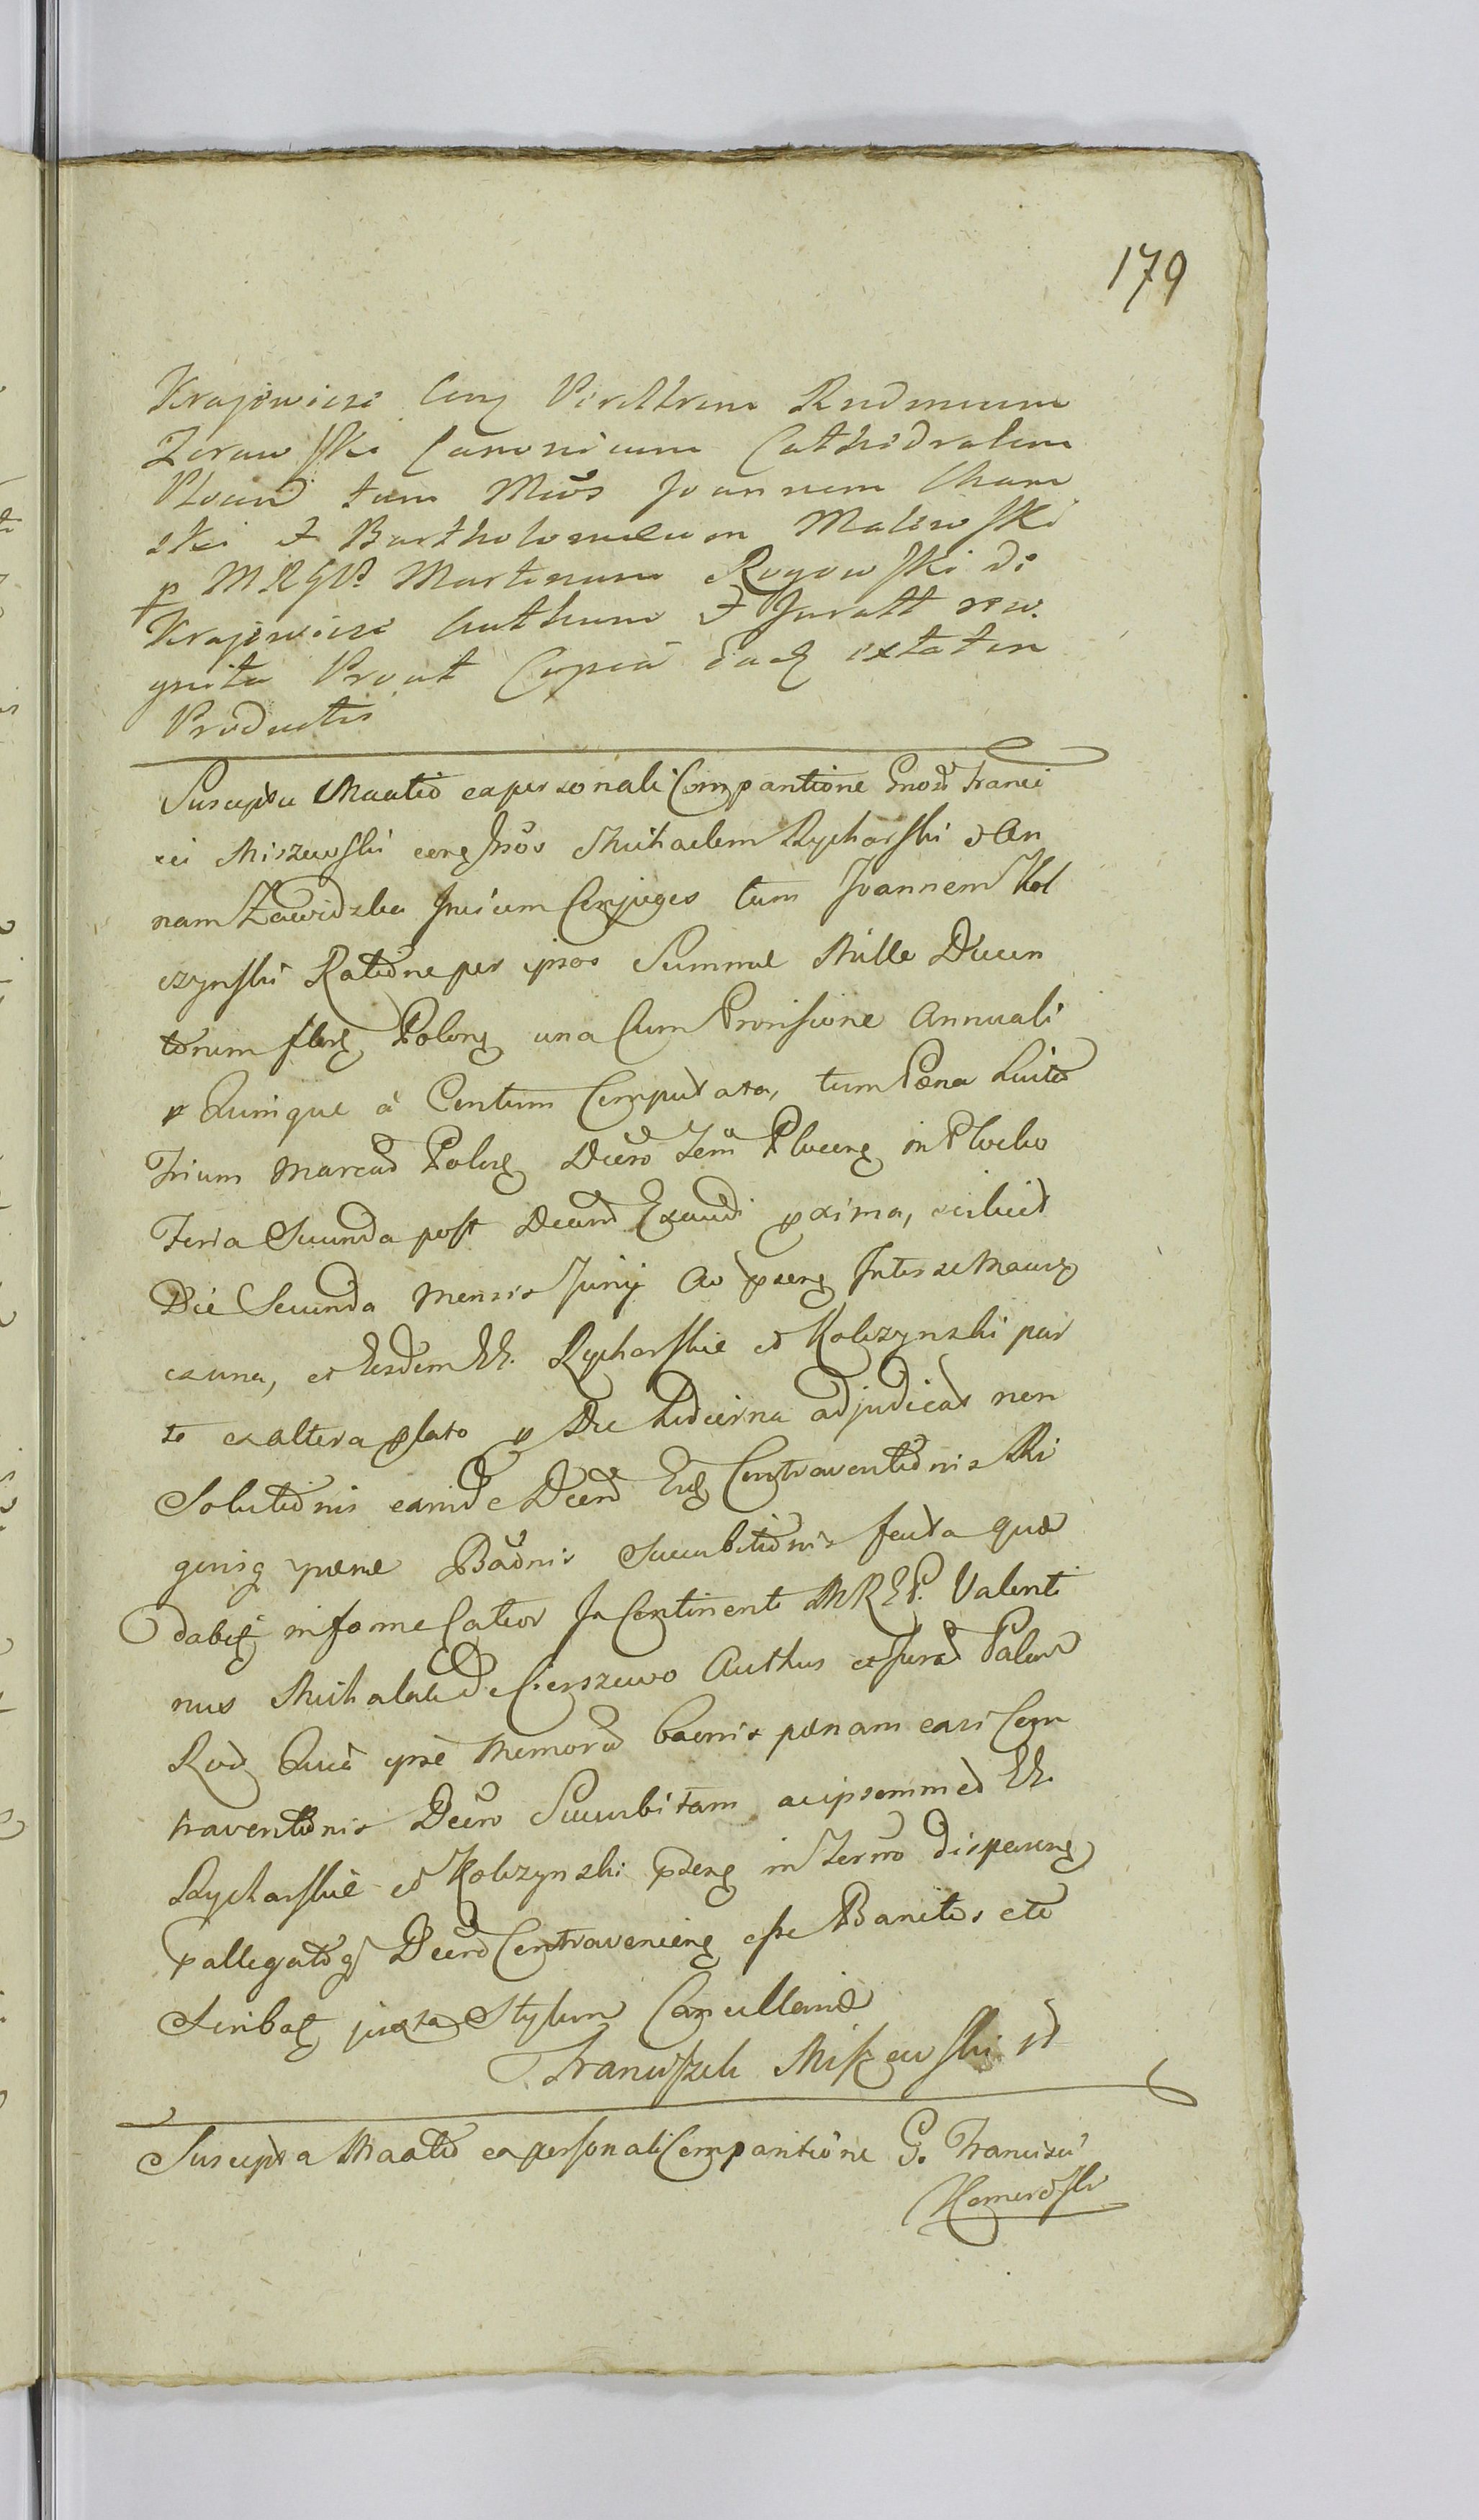 179
Krajewiczi Cony Perillrem Rndmum
Zeraw ski Canonicum Cathedralem
Plocen tum Mws Joannem Cham
ski et Bartholomeum Malewski
p M R G Martinum Rogowski de
Krajewicze Authum et Juratt reco.
gnita Prout Copia eadz extat in
Productis
Suscepta Maatio ex personali Compantione Gnosi Franci
sci Miszewski cong Gnsos Michaelem Rycharski et An
nam Zawidzka Jnicem Conjuges tum Joannem Kol
czynski Ratione per ipsos Summae Mille Ducen
torum flor Polong una Cum Provisione Annuali
p Quinque à Centum Computata, tum Poena Luito
Trium Marcar Polong Decro Terr Plocens in Plocko
Feria Secunda post Dcam Exaudi pxima, scilicet
Die Secunda Mensis Junij Ao pseng Inter se Maung
ex una, et Eosdem GG. Rycharskie et Kolczynski par
te ex altera plato p Die Hodierna adjudicat non
Solutionis eamde Decro Ejq Contraventionis Ri
gorisq poenae Bannis Succubitionis facta quae
dabitz in forma Latior In Continenti M R G P. Valenti
nus Michalak de Cierszewo Authus et Jurat Palnus
Rcd Quia ipse Memorat bannis poenam easi Con
traventionis Decro Succubitam ac ipsemmet GG.
Rycharskie et Kolczynski pseng in Termo dispareng
pallegatoq Decro Contravenieng esse Banitos etc
Scribatz juxta Stylum Cancellariae
Franciszek Miszewski st
Suscepta Maatio ex personali Compantione G. Francisci
Komorowski